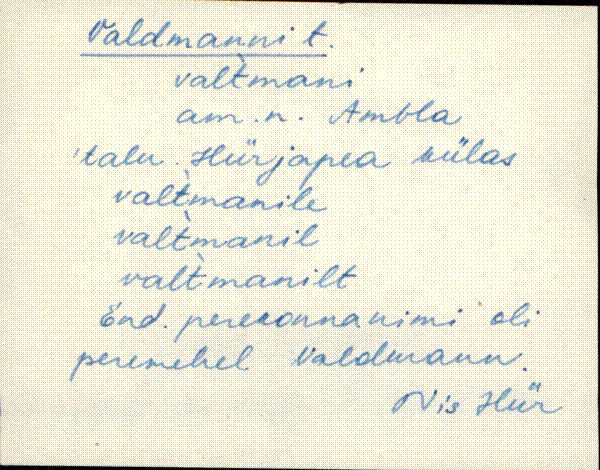 Valdmanni t.
valt̀mani
am. n. Ambla
'talu. Hürjapea külas
valt̀manile
valt̀manil
valt̀manilt
End. perekonnanimi oli
peremehel Valdmann.
Nis Hür